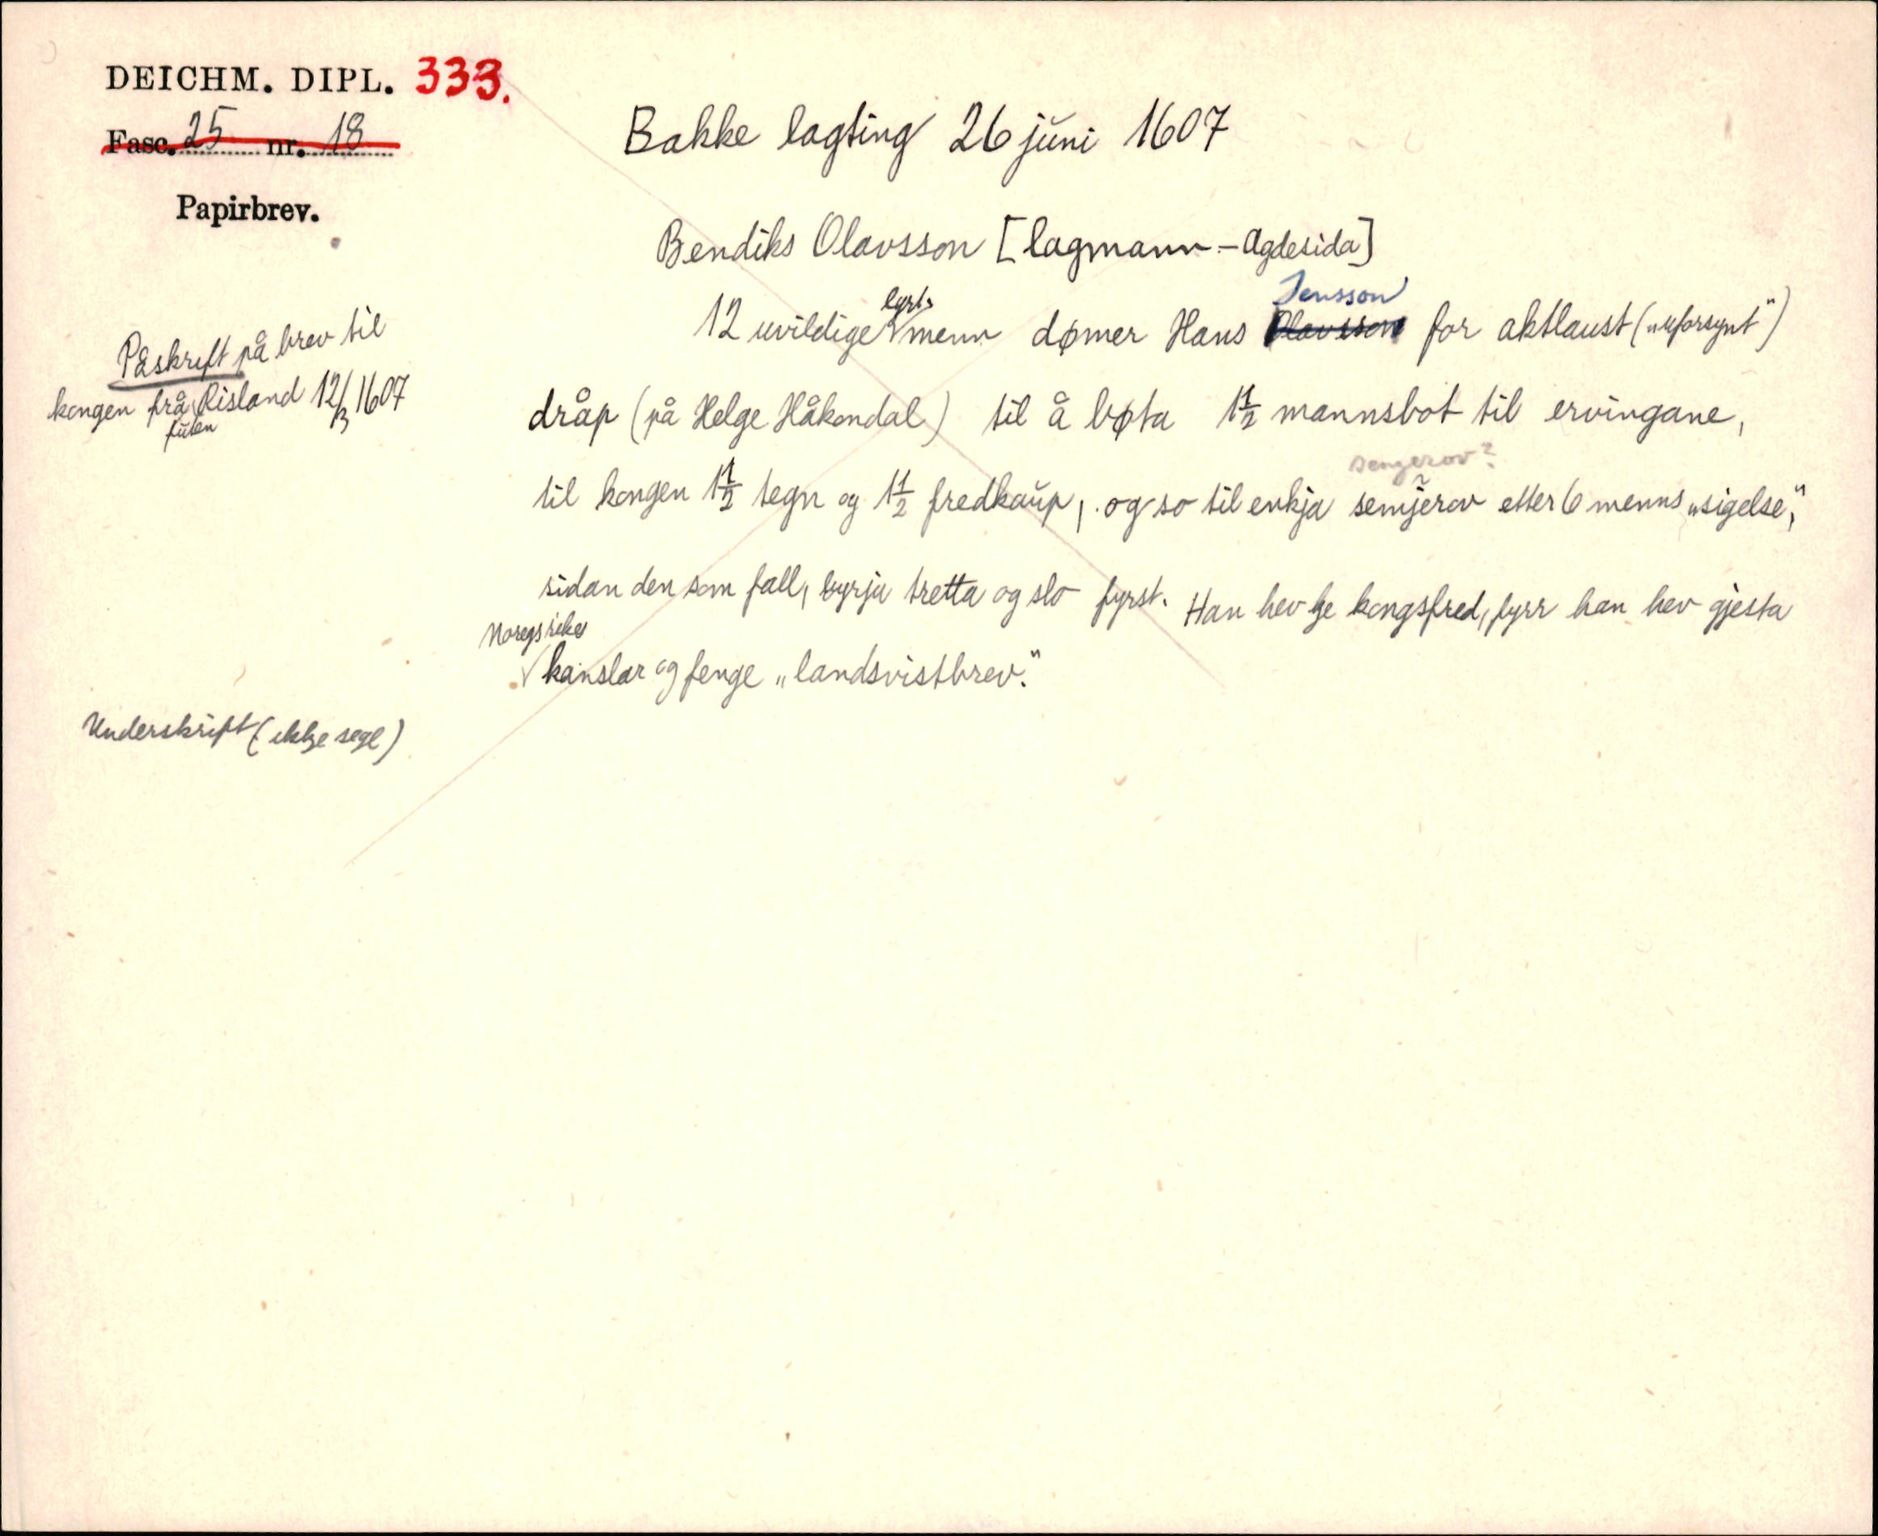 DEICHM. DIPL. 333.
Fasc. 25 nr. 18
Papirbrev.
Bakke lagting 26 juni 1607
Bendiks Olavsson [lagmann – Agdesida]
Påskrift på brev til
kongen frå Risland 12/3 1607
futen
lyrt.
Jensson
12 uvildige menn dømer Hans Olavsson for aktlaust („uforsynt")
dråp (på Helge Håkondal) til å bøta 1 1/2 mannsbot til ervingane,
sengerov?
til kongen 1 1/2 tegn og 1 1/2 fredkaup, og so til enkja semjerov etter 6 menns „sigelse",
sidan den som fall, byrja tretta og slo fyrst. Han hev kje kongsfred, fyrr han hev gjesta
Noregs rikes
kanslar og fenge „landsvistbrev."
Underskrift (ikkje segl)